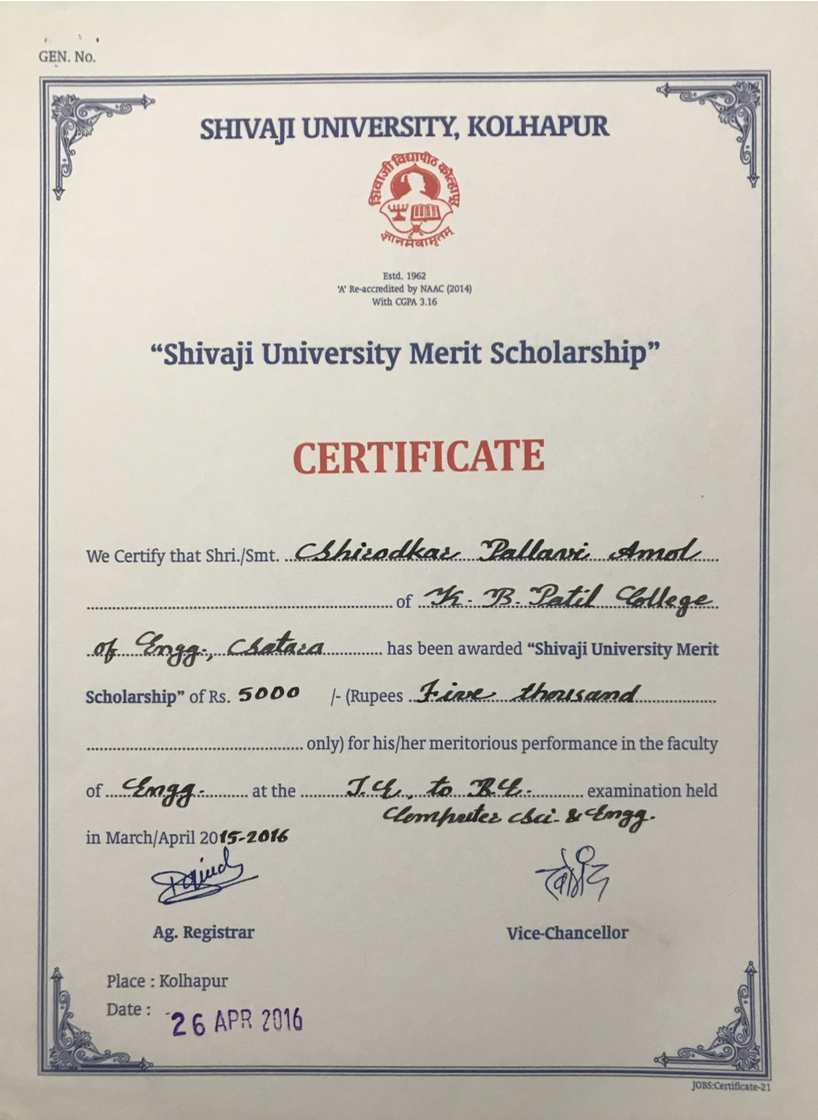 GEN. No.
SHIVAJI UNIVERSITY, KOLHAPUR
शिवाजी विद्यापीठ कोल्हापूर
ज्ञानमेवामृतम्
Estd. 1962
'A' Re-accredited by NAAC (2014)
With CGPA 3.16
“Shivaji University Merit Scholarship”
CERTIFICATE
We Certify that Shri./Smt. Shirodkar Pallavi Amol
of K. B. Patil College
of Engg., Satara has been awarded “Shivaji University Merit
Scholarship” of Rs. 5000 /- (Rupees Five thousand
only) for his/her meritorious performance in the faculty
of Engg. at the T.E. to B.E. examination held
Computer Sci. & Engg.
in March/April 2015-2016
Ag. Registrar Vice-Chancellor
Place : Kolhapur
Date : 26 APR 2016
JOBS:Certificate-21